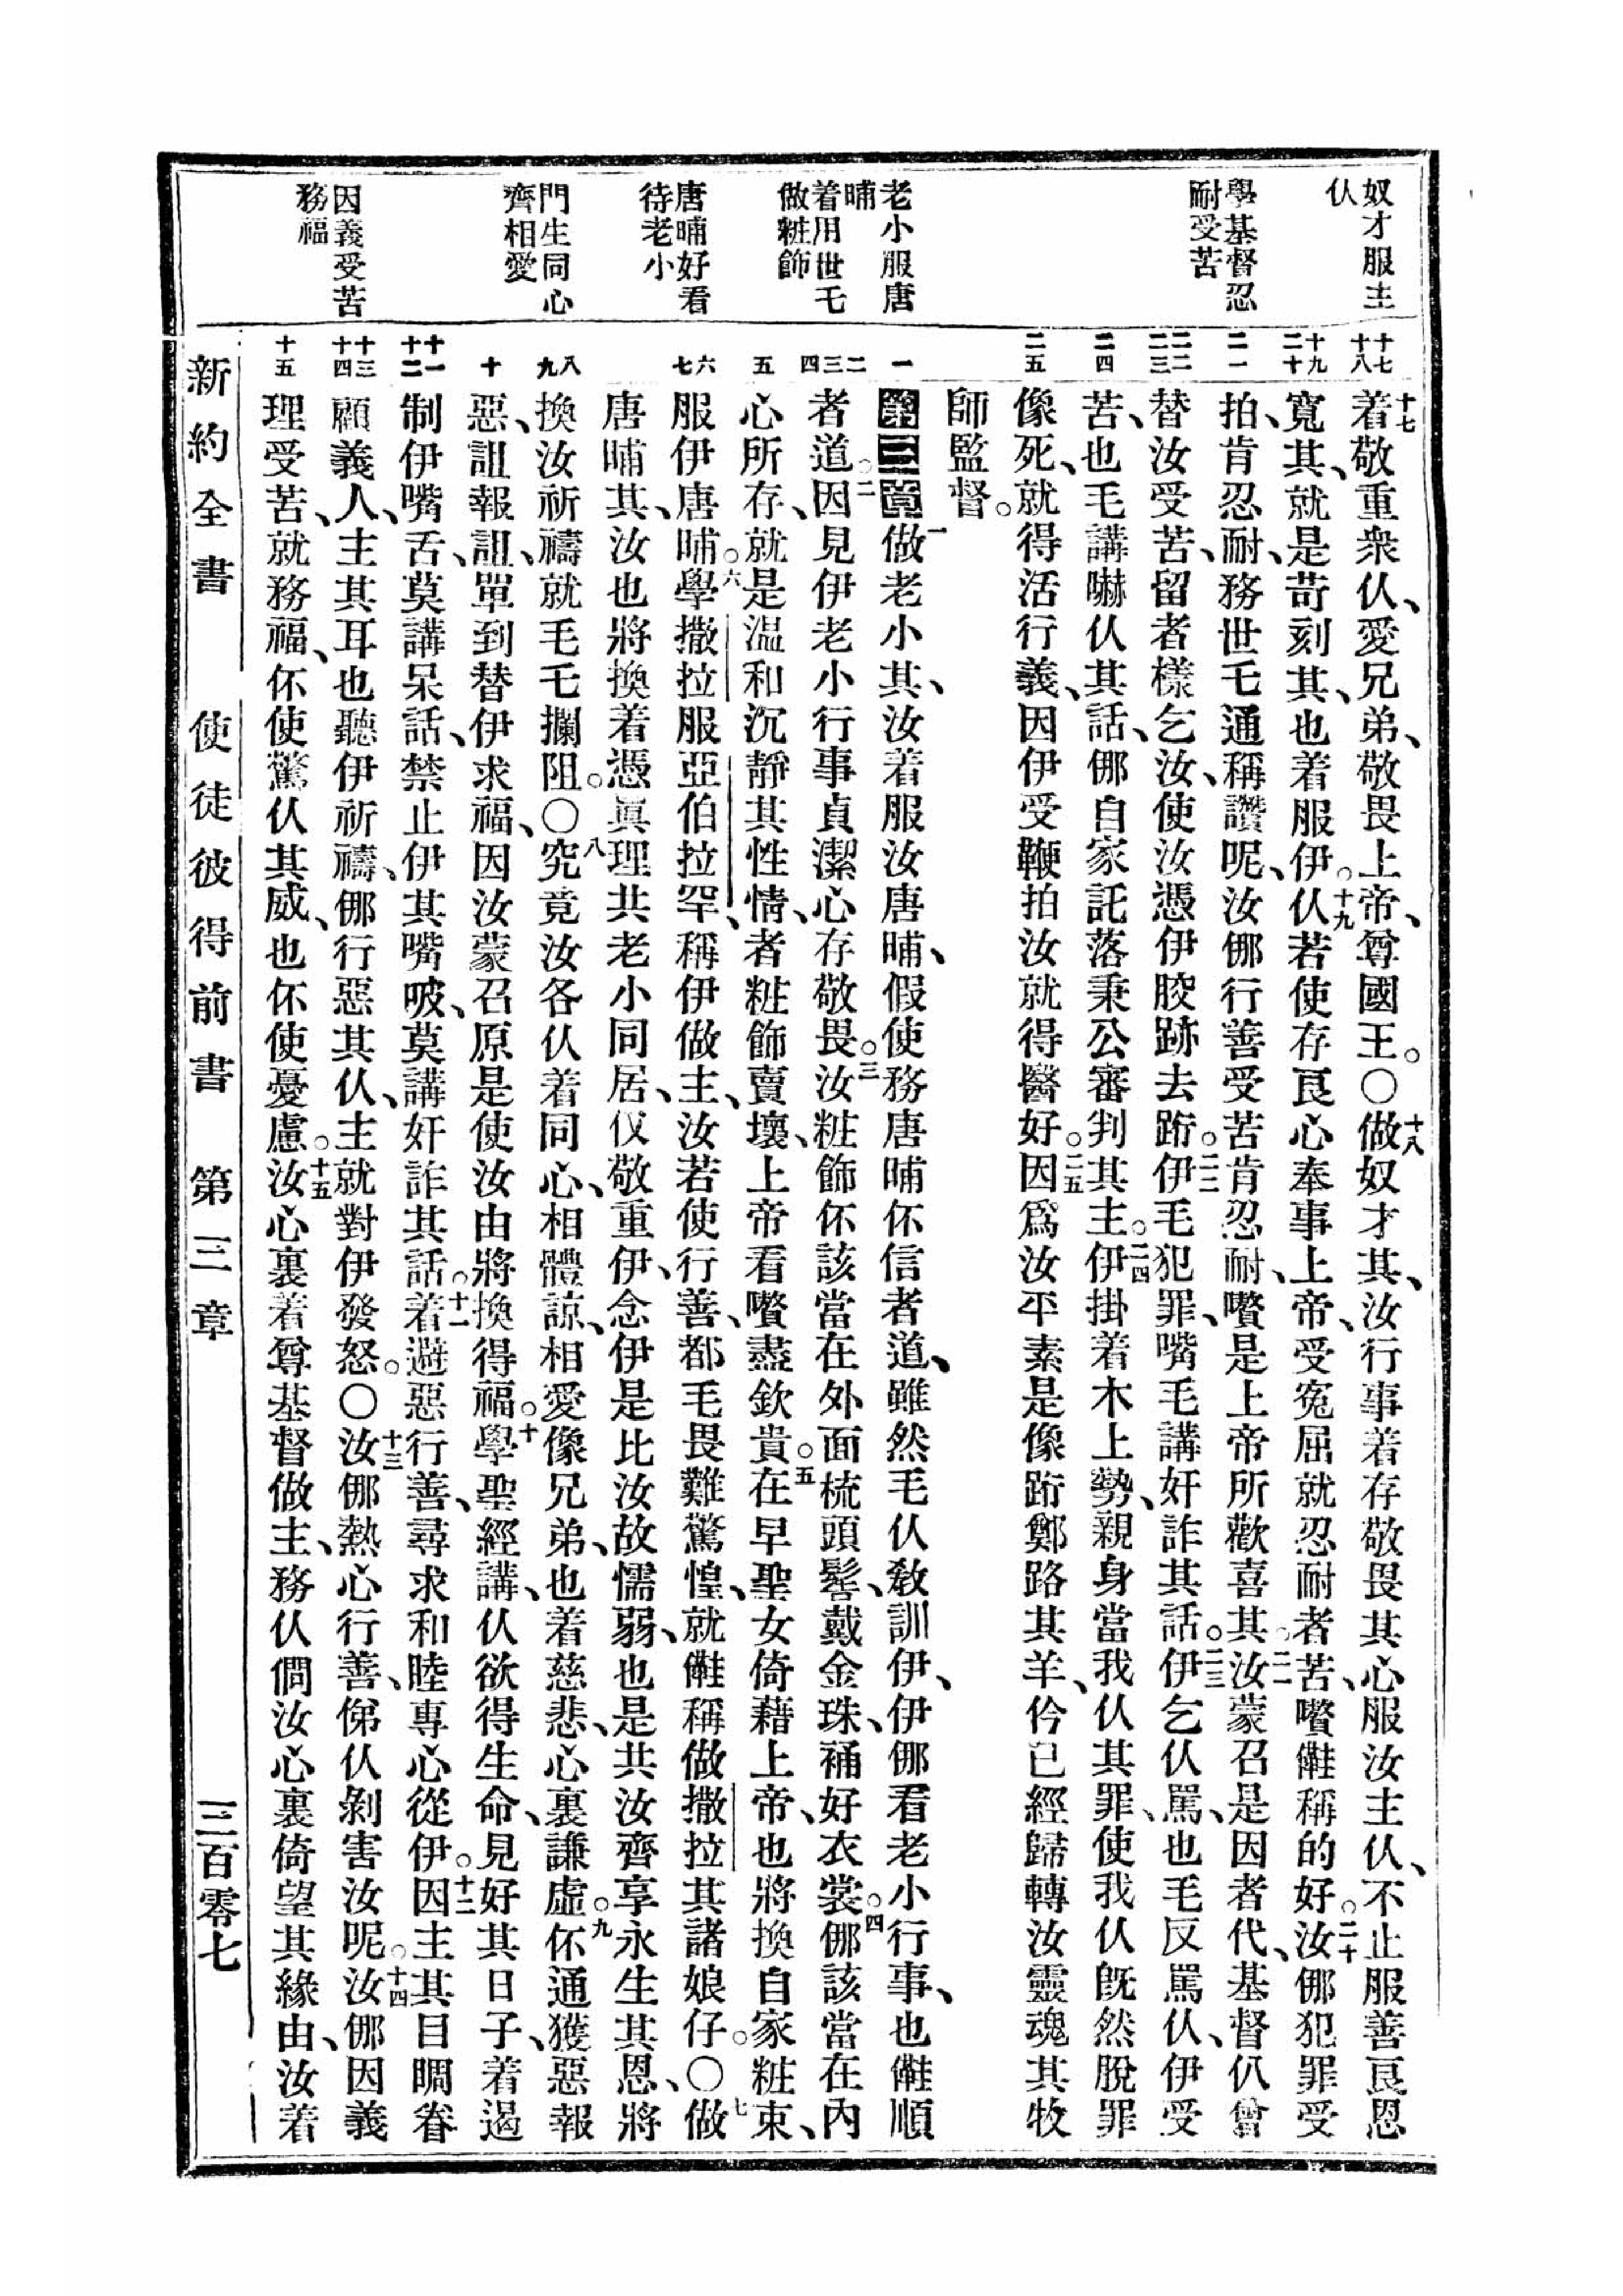 奴才服主
仈
學基督忍
耐受苦
老小服唐
晡
着用世乇
做粧飾
唐晡好看
待老小
門生同心
齊相愛
因義受苦
務福
十七
十八
十九
二十
二一
二二
二三
二四
二五
一
二
三
四
五
六
七
八
九
十
十一
十二
十三
十四
十五
十七着敬重衆仈、愛兄弟、敬畏上帝、尊國王。〇十八做奴才其、汝行事着存敬畏其心服汝主仈、不止服善良恩
寬其、就是苛刻其、也着服伊。十九仈若使存良心奉事上帝、受寃屈就忍耐者苦、嚽㒕稱的好。二十汝倻犯罪受
拍、肯忍耐、務世乇通稱讚呢、汝倻行善受苦肯忍耐、嚽是上帝所歡喜其。二一汝蒙召是因者代、基督仈曾
替汝受苦、留者樣乞汝、使汝憑伊骹跡去跡。二二伊毛犯罪、嘴毛講奸詐其話。二三伊乞仈罵、也毛反罵仈、伊受
苦、也毛講嚇仈其話、倻自家託落秉公審判其主。二四伊掛着木上勢、親身當我仈其罪、使我仈旣然脫罪
像死、就得活行義、因伊受鞭拍汝就得醫好。二五因爲汝平素是像跡鄭路其羊、仱已經歸轉汝靈魂其牧
師監督。
第三章一做老小其、汝着服汝唐晡、假使務唐晡伓信者道、雖然毛仈敎訓伊、伊倻看老小行事、也㒕順
者道。二因見伊老小行事貞潔心存敬畏。三汝粧飾伓該當在外面梳頭髻、戴金珠、䘄好衣裳。四倻該當在內
心所存、就是温和沉靜其性情、者粧飾賣壞、上帝看嚽盡欽貴。五在早聖女倚藉上帝、也將換自家粧束、
服伊唐晡。六學撒拉服亞伯拉罕、稱伊做主、汝若使行善、都毛畏難驚惶、就㒕稱做撒拉其諸娘仔。〇七做
唐晡其、汝也將換着憑眞理共老小同居、仪敬重伊、念伊是比汝故懦弱、也是共汝齊享永生其恩、將
換汝祈禱就毛乇攔阻。〇八究竟汝各仈着同心、相體諒、相愛像兄弟、也着慈悲、心裏謙虛。九伓通獲惡報
惡、詛報詛、單到替伊求福、因汝蒙召原是使汝由將換得福。十學聖經講、仈欲得生命、見好其日子、着遏
制伊嘴舌、莫講呆話、禁止伊其嘴㖞、莫講奸詐其話。十一着避惡行善、尋求和睦專心從伊。十二因主其目睭眷
顧義人、主其耳也聽伊祈禱、倻行惡其仈、主就對伊發怒。〇十三汝倻熱心行善、俤仈剝害汝呢。十四汝倻因義
理受苦、就務福、伓使驚仈其威、也伓使憂慮。十五汝心裏着尊基督做主、務仈僩汝心裏倚望其緣由、汝着
新約全書　使徒彼得前書　第三章　三百零七